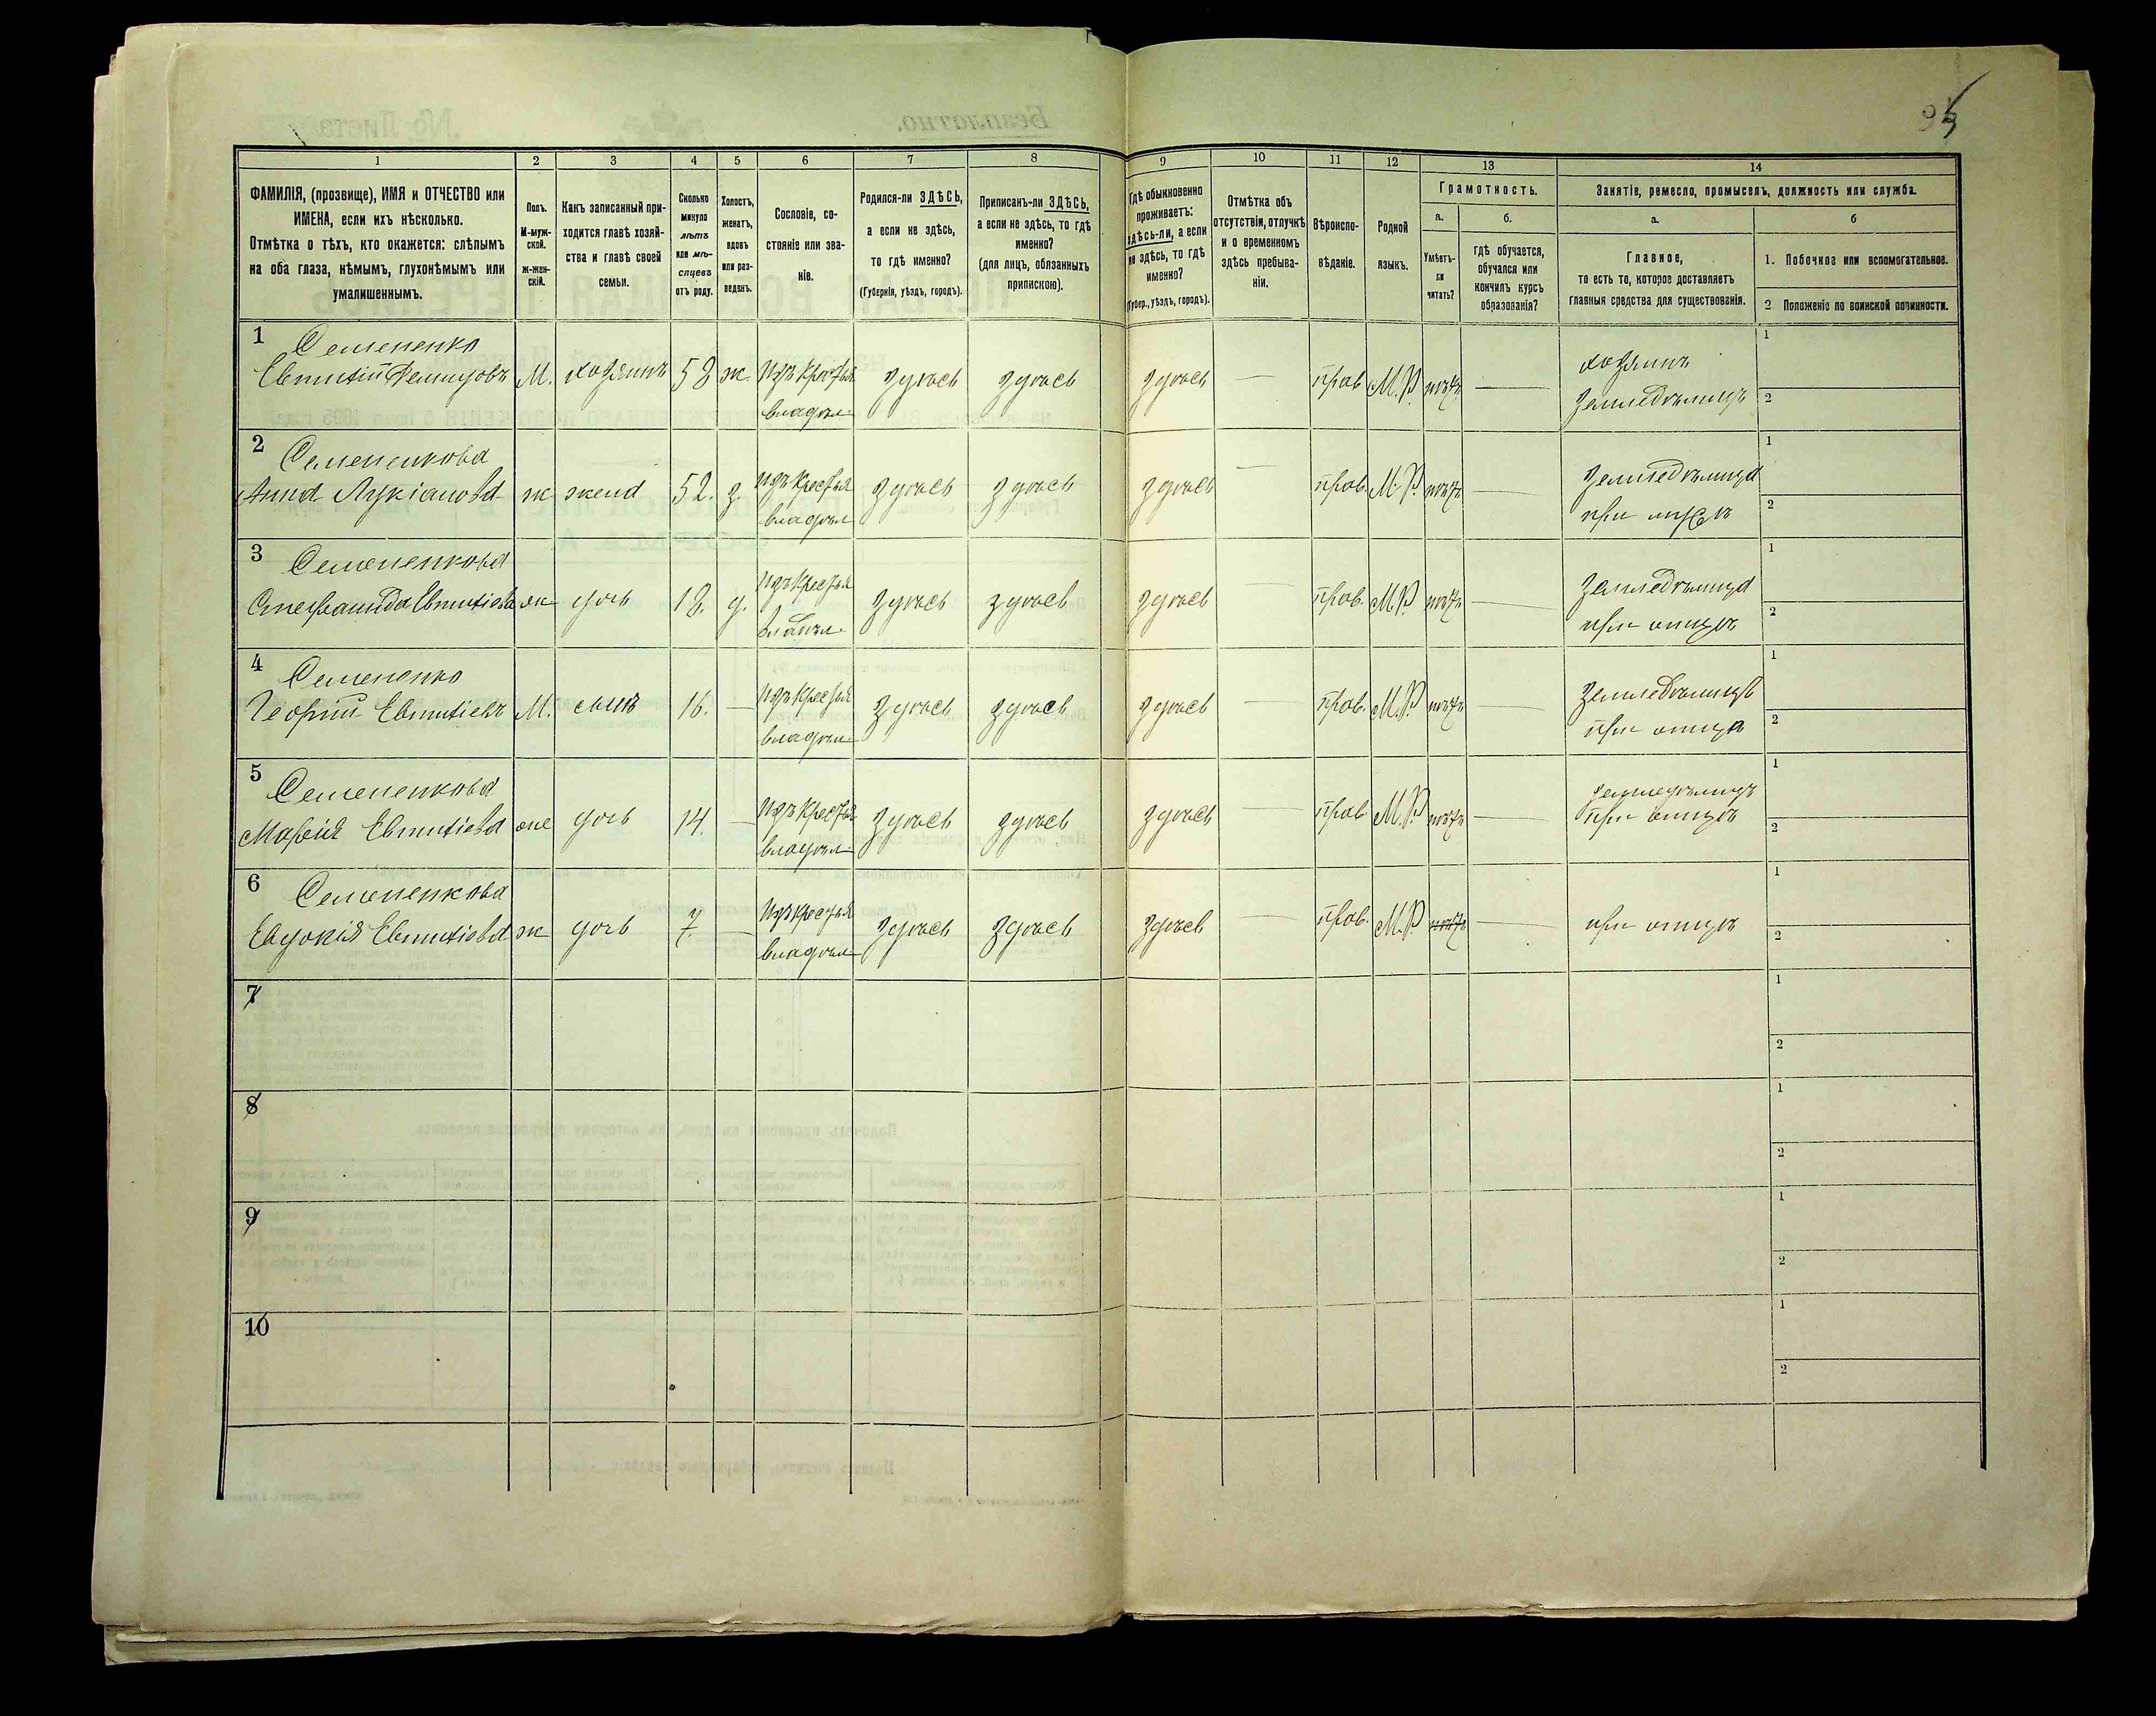 95
1
2
3
4
5
6
7
8
9
10
11
12
13
14
ФАМИЛІЯ, (прозвище), ИМЯ и ОТЧЕСТВО или
ИМЕНА, если ихъ нѣсколько.
Отмѣтка о тѣхъ, кто окажется: слѣпымъ
на оба глаза, нѣмымъ, глухонѣмымъ или
умалишеннымъ.
Полъ.
М-муж-
ской.
ж-жен-
скій.
Какъ записанный при-
ходится главѣ хозяй-
ства и главѣ своей
семьи.
Сколько
минуло
лѣтъ
или мѣ-
сяцевъ
отъ роду.
Холостъ,
женатъ,
вдовъ
или раз-
веденъ.
Сословіе, со-
стояніе или зва-
ніе.
Родился-ли ЗДѢСЬ,
а если не здѣсь,
то гдѣ именно?
(Губернія, уѣздъ, городъ).
Приписанъ-ли ЗДѢСЬ,
а если не здѣсь, то гдѣ
именно?
(для лицъ, обязанныхъ
припискою).
Гдѣ обыкновенно
проживаетъ:
здѣсь-ли, а если
не здѣсь, то гдѣ
именно?
(Губер., уѣздъ, городъ).
Отмѣтка объ
отсутствіи, отлучкѣ
и о временномъ
здѣсь пребыва-
ніи.
Вѣроиспо-
вѣданіе.
Родной
языкъ.
Грамотность.
а.
б.
Умѣетъ-
ли
читать?
гдѣ обучается,
обучался или
кончилъ курсъ
образованія?
Занятіе, ремесло, промыселъ, должность или служба.
а.
б
Главное,
то есть то, которое доставляетъ
главныя средства для существованія.
1. Побочное или вспомогательное.
2 Положеніе по воинской повинности.
1 Семененко
Евтихій М. хозяинъ 58 ж. изъ крестья здѣсь здѣсь здѣсь — прав М.Р. нѣтъ — хозяинъ 1
владѣл. земледѣлецъ 2
2 Семененкова
Анна Лукіанова ж жена 52. з изъ крестья здѣсь здѣсь здѣсь — прав. М.Р. нѣтъ — земледѣлица 1
владѣл при мужѣ 2
3 Семененкова
Евтихіева ж дочь 18. д. изъ крестья здѣсь здѣсь здѣсь — прав. М.Р. нѣтъ — земледѣлица 1
владѣл. при отцѣ 2
4 Семененко
Георгій Евтихіевъ М. сынъ 16. — изъ крестья здѣсь здѣсь здѣсь — прав. М.Р. нѣтъ — земледѣлецъ 1
владѣл. при отцѣ 2
5 Семененкова
Марія Евтихіева же дочь 14. — изъ крестья здѣсь здѣсь здѣсь — прав М.Р. нѣтъ — 1
владѣл. при отцѣ 2
6 Семененкова
Евдокія Евтихіева ж дочь 7. — изъ крестья здѣсь здѣсь здѣсь — прав. М.Р. нѣтъ — при отцѣ 1
владѣл 2
7
1
2
8
1
2
9
1
2
10
1
2